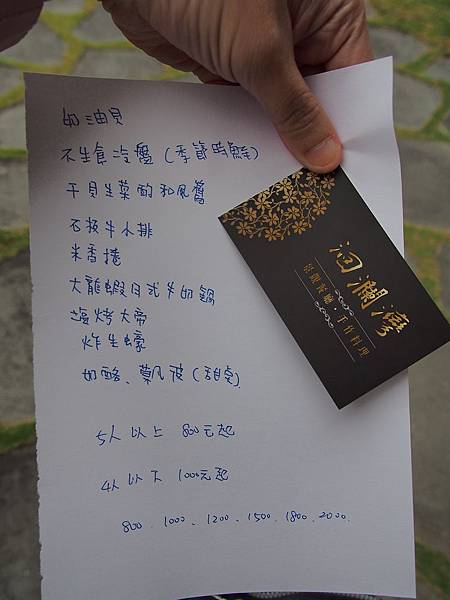 奶油貝
不生食冷盤（季節時鮮）
干貝生菜酌和風醬
石板牛小排
米香捲
大龍蝦日式牛奶鍋
塩烤大帝
炸生蠔
奶酪、草凡波（甜桌）
5人以上 800元起
4人以下 1000元起
800、1000、1200、1500、1800、2000.
洄瀾灣
景觀餐廳・手作料理